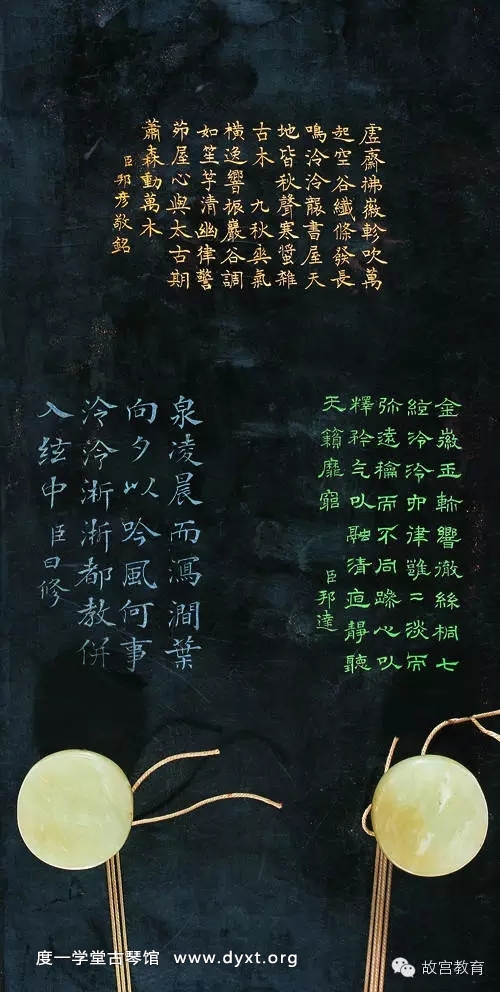 虛齋拂徽軫吹萬
起空谷纖條發長
鳴泠泠襲書屋天
地皆秋聲寒蛩雜
古木 九秋爽氣
橫逸響振巖谷調
如笙竽清幽律警
茆屋心與太古期
蕭森動萬木
臣邦彥敬銘
金徽玉軫響徹絲桐七
絃泠泠中律雝〻淡而
弥遠龢而不同滌心以
釋矜气以融清宜靜聽
天籟靡窮
臣邦達
泉淩晨而瀉澗葉
向夕以吟風何事
泠泠淅淅都教併
入絃中 臣曰修
度一学堂古琴馆 www.dyxt.org
故宫教育